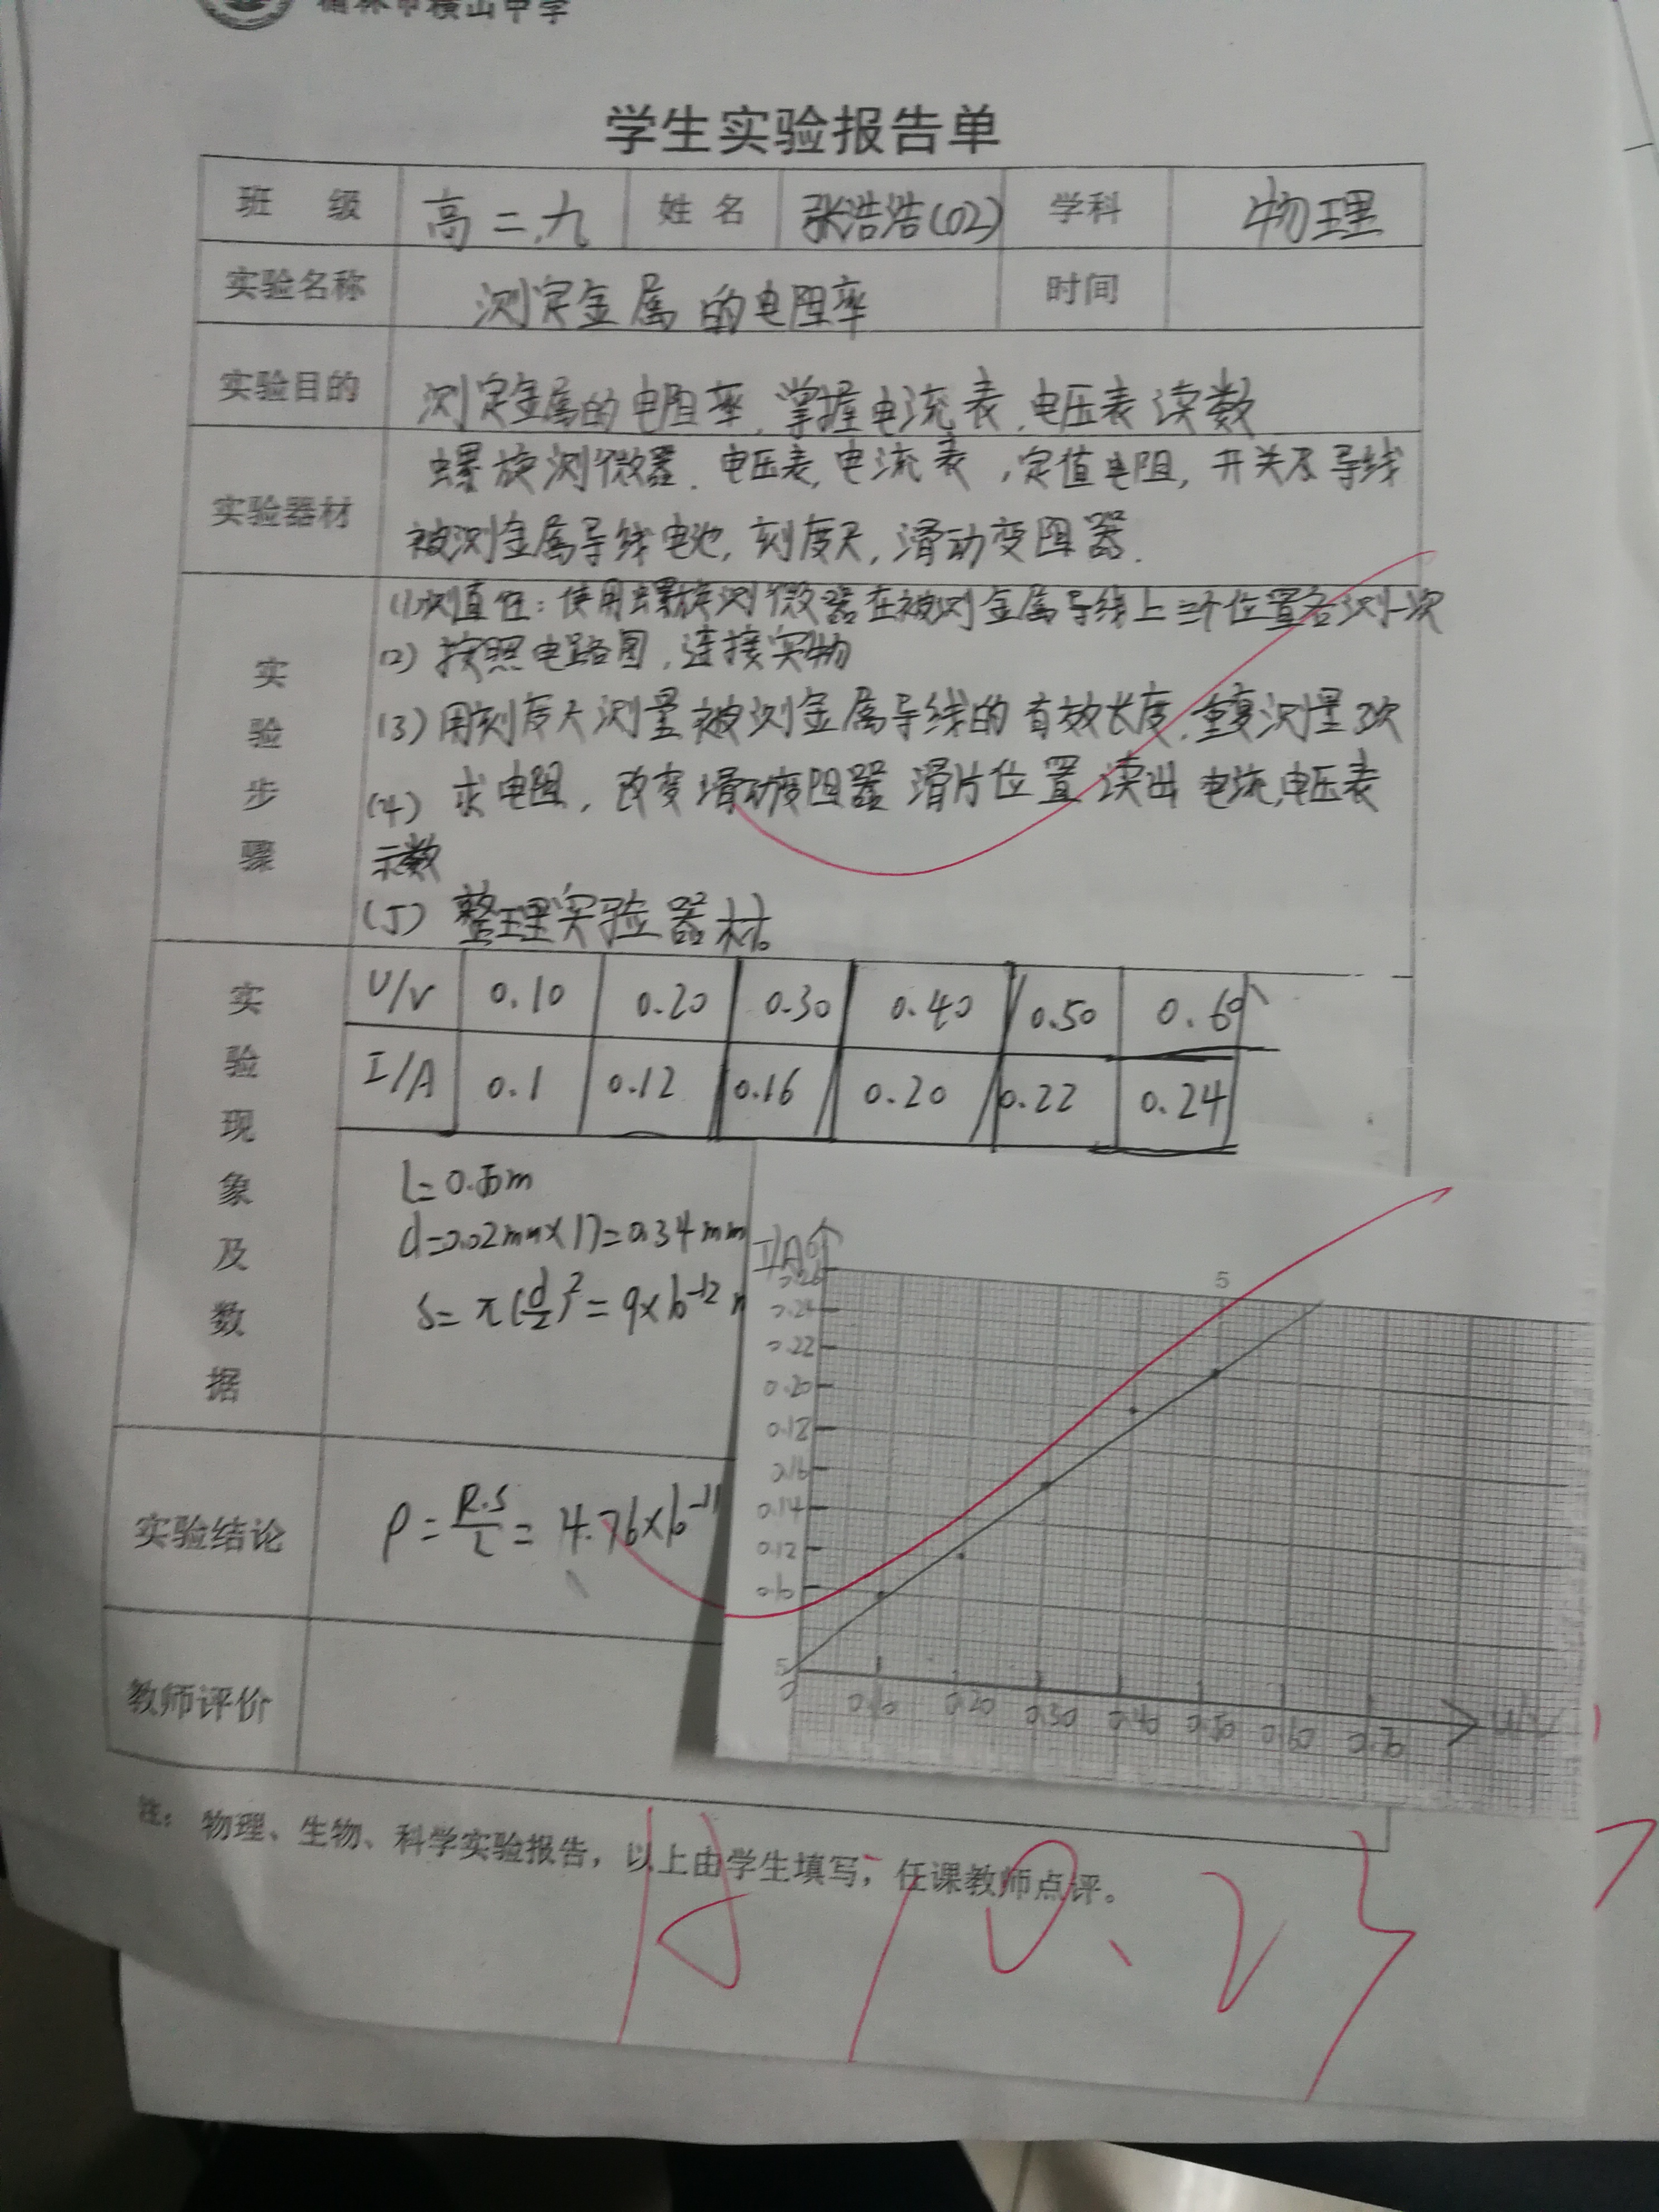 榆林市横山中学
学生实验报告单
班 级 高二.九 姓名 张浩浩(02) 学科 物理
实验名称 测定金属的电阻率 时间
实验目的 测定金属的电阻率.掌握电流表.电压表读数
实验器材 螺旋测微器.电压表,电流表,定值电阻,开关及导线
被测金属导线电池,刻度尺,滑动变阻器.
实验步骤
(1)测直径:使用螺旋测微器在被测金属导线上三个位置各测一次
(2)按照电路图,连接实物
(3)用刻度尺测量被测金属导线的有效长度.重复测量3次
(4) 求电阻,改变滑动变阻器滑片位置读出电流,电压表
示数
(5)整理实验器材。
实验现象及数据
U/V 0.10 0.20 0.30 0.40 0.50 0.60
I/A 0.1 0.12 0.16 0.20 0.22 0.24
d=0.02mm×17=0.34mm
S=π(d/2)²=9×10⁻¹²
I/A
0.26
5
0.24
0.22
0.20
0.18
0.16
0.14
0.12
0.10
5
0 0.10 0.20 0.30 0.40 0.50 0.60 0.70
实验结论 ρ=R.S/L=4.76×10⁻¹¹
教师评价
注:物理、生物、科学实验报告,以上由学生填写,任课教师点评。